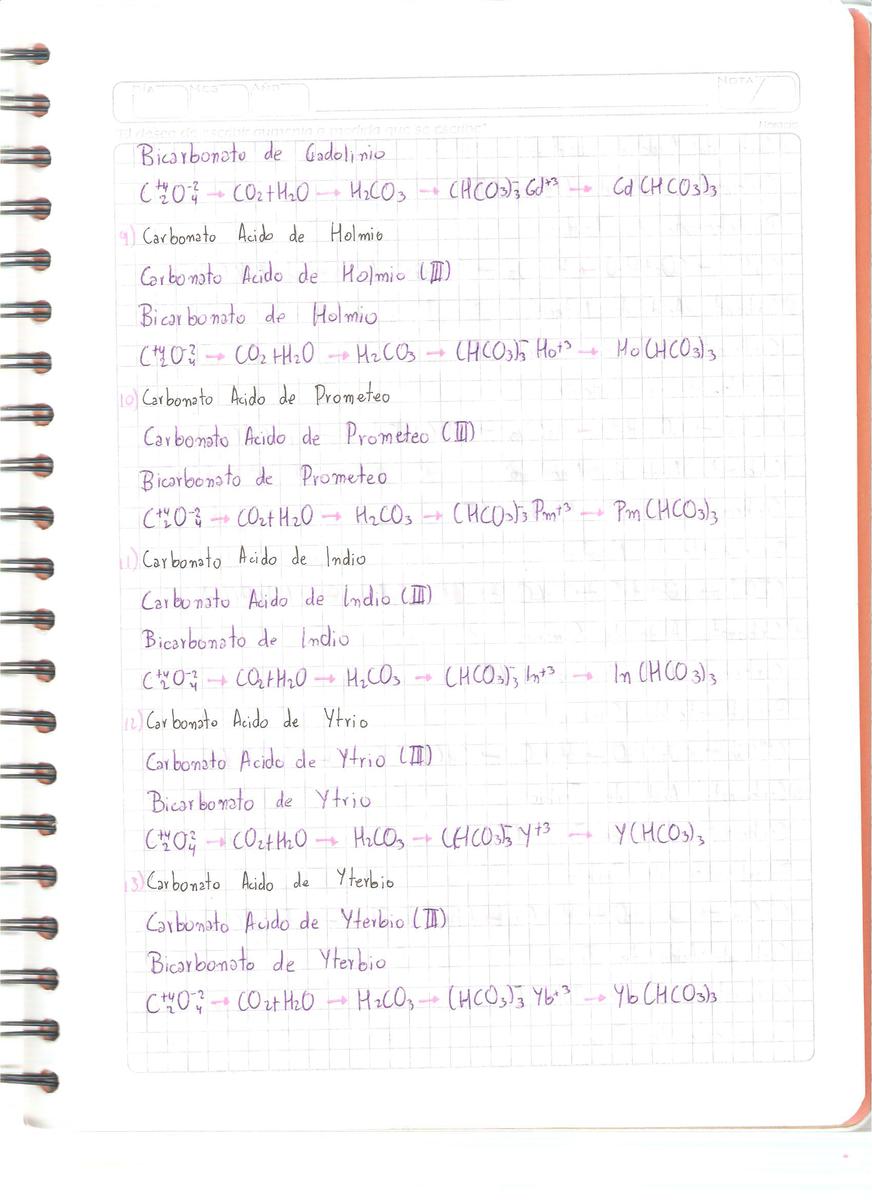 DÍA MES AÑO NOTA
"El deseo de escribir aumenta a medida que se escribe" Horacio
Bicarbonato de Gadolinio
C⁺⁴₂O⁻²₄ → CO2+H2O → H2CO3 → (HCO3)⁻₃ Gd⁺³ → Gd(HCO3)3
9) Carbonato Acido de Holmio
Carbonato Acido de Holmio (III)
Bicarbonato de Holmio
C⁺⁴₂O⁻²₄ → CO2+H2O → H2CO3 → (HCO3)⁻₃ Ho⁺³ → Ho(HCO3)3
10) Carbonato Acido de Prometeo
Carbonato Acido de Prometeo (III)
Bicarbonato de Prometeo
C⁺⁴₂O⁻²₄ → CO2+H2O → H2CO3 → (HCO3)⁻₃ Pm⁺³ → Pm(HCO3)3
11) Carbonato Acido de Indio
Carbonato Acido de Indio (III)
Bicarbonato de Indio
C⁺⁴₂O⁻²₄ → CO2+H2O → H2CO3 → (HCO3)⁻₃ In⁺³ → In(HCO3)3
12) Carbonato Acido de Ytrio
Carbonato Acido de Ytrio (III)
Bicarbonato de Ytrio
C⁺⁴₂O⁻²₄ → CO2+H2O → H2CO3 → (HCO3)⁻₃ Y⁺³ → Y(HCO3)3
13) Carbonato Acido de Yterbio
Carbonato Acido de Yterbio (III)
Bicarbonato de Yterbio
C⁺⁴₂O⁻²₄ → CO2+H2O → H2CO3 → (HCO3)⁻₃ Yb⁺³ → Yb(HCO3)3